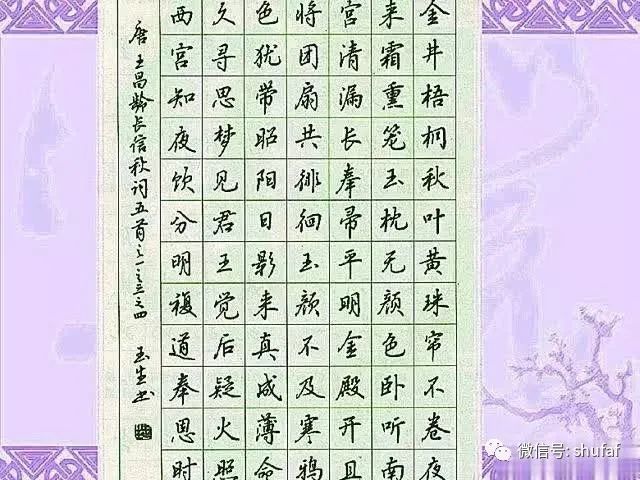 金井梧桐秋叶黄珠帘不卷夜
来霜熏笼玉枕无颜色卧听南
宫清漏长奉帚平明金殿开且
将团扇共徘徊玉颜不及寒鸦
色犹带昭阳日影来真成薄命
久寻思梦见君王觉后疑火照
西宫知夜饮分明複道奉恩时
唐王昌龄长信秋词五首之一之三之四 玉生书
微信号: shufaf